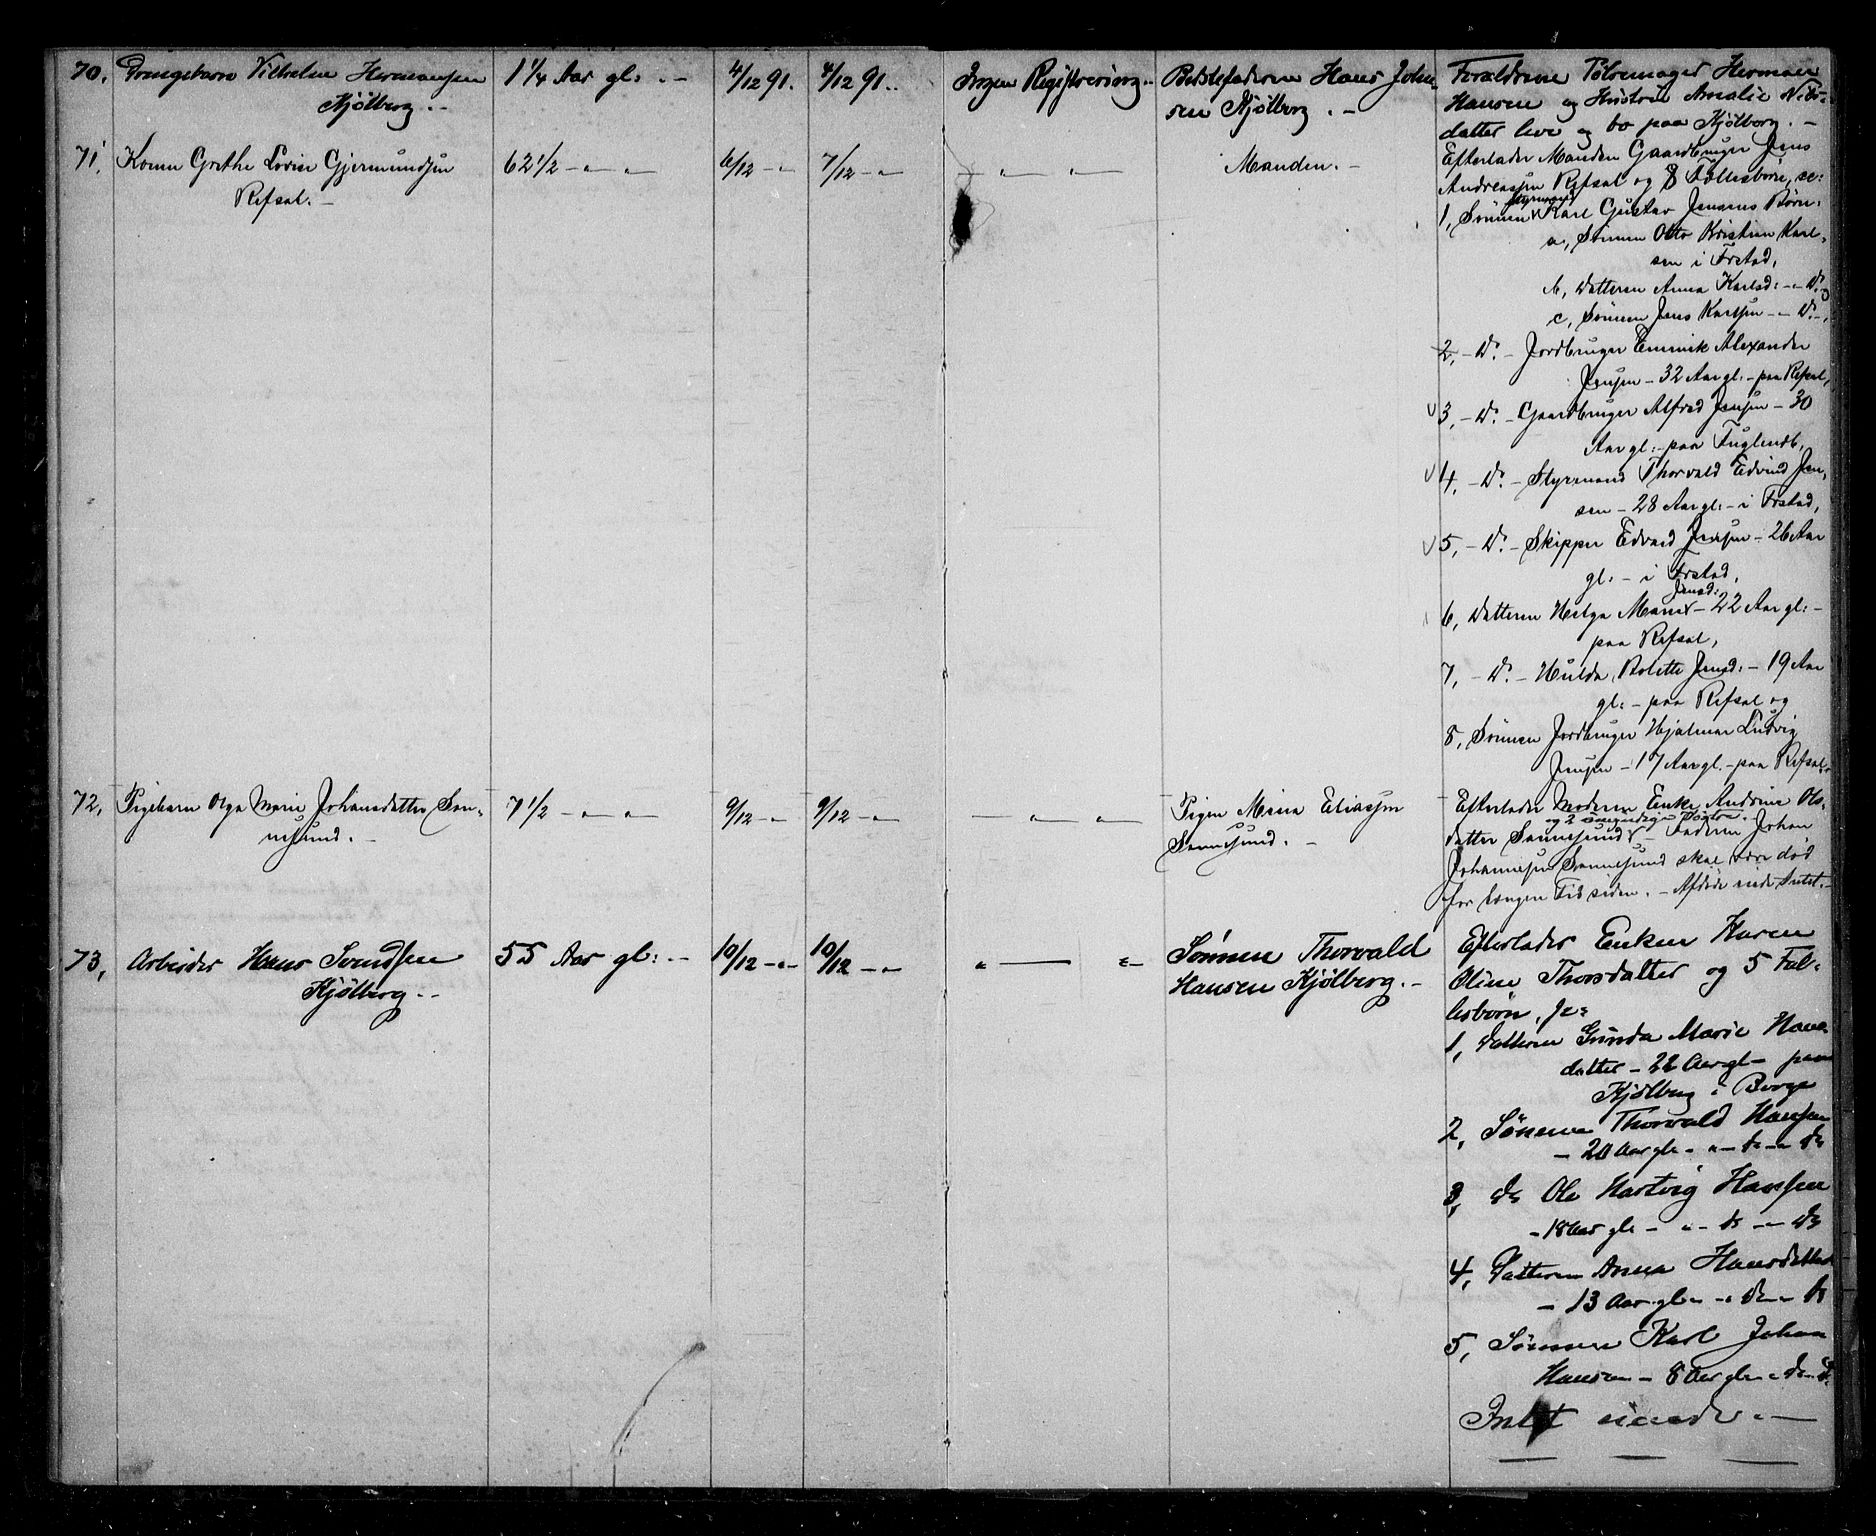 70, Drengebarn Vilhelm Hermansen
Kjølberg. -
1 1/4 Aar gl: . -
4/12 91.
4/12 91..
Ingen Registrering..
Bedstefaderen Hans Johan-
sen Kjølberg . -
Forældrene Pølsemager Herman
Hansen og Hustru Amalie Nils-
datter leve og bo paa Kjølberg. -
71, Konen Grethe Lovise Gjermundsen
Refsal. -
62 1/2 - " - "
6/12 - "
7/12 - "
- " - " -
Manden. -
Efterlader Manden Gaardbruger Jens
Andreassen Refsal og 8 Fællesbørn, sc:
Styrmand
1, Sønnen Karl Gustav Jensens Børn:
a, Sønnen Otto Kristian Karl-
sen i Frstad,
b, Datteren Anna Karlsd: - " - Do og
c, Sønnen Jens Karlsen - " - Do -,
2, - Do - Jordbruger Emmik Alexander
Jensen - 32 Aar gl: - paa Refsal,
3, - Do - Gaardbruger Alfred Jensen - 30
Aar gl: - paa Fuglevik,
4, - Do - Styrmand Thorvald Edvind Jen-
sen - 28 Aar gl: - i Frstad,
5, - Do - Skipper Edvard Jensen - 26 Aar
gl: - i Frstad,
Jensd:
6, Datteren Helga Marie - 22 Aar gl: -
paa Refsal,
7, - Do - Hulda Bolette Jensd: - 19 Aar
gl: - paa Refsal og
8, Sønnen Jordbruger Hjalmar Ludvig
Jensen - 17 Aar gl. - paa Refsal.
72, Pigebarn Olga Marie Johansdatter San-
nesund. -
7 1/2 - " - "
9/12 - "
9/12 - "
- " - " -
Pigen Mina Eliassen
Sannesund. -
Efterlader Moderen Enke Andrine Ols-
og 2 umyndige Søstre.
datter Sannesund - Faderen Johan
Johannesen Sannesund skal være død
for længere Tid siden. - Afdøde eiede Intet. -
73, Arbeider Hans Svendsen
Kjølberg. -
55 Aar gl: . -
10/12 - "
10/12 - "
" - " -
Sønnen Thorvald
Hansen Kjølberg. -
Efterlader Enken Karen
Oline Thorsdatter og 5 Fæl-
lesbørn, sc:
1, Datteren Gunda Marie Hans-
datter - 22 Aar gl - paa
Kjølberg i Borge
2, Sønnen Thorvald Hansen
- 20 Aar gl. - " - do - " do
3, do Ole Hartvig Hansen
- 18 Aar gl - " - do - " do
4, Datteren Anna Hansdatter
- 13 Aar gl - " do " do
5, Sønnen Karl Johan
Hansen - 8 Aar gl - " do " do
Intet eiende. -